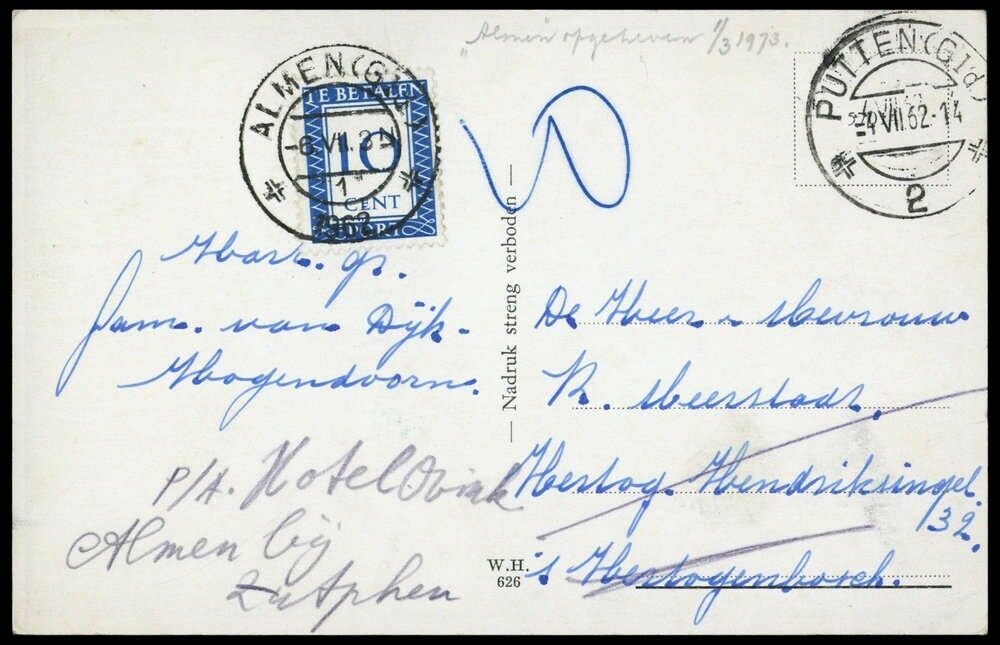 „Almen" opgeheven 1/3 1973.
ALMEN (Gld)
-6.VII. 3N
1
1962
TE BETALEN
10
CENT
PORT
10
PUTTEN (Gld)
-4.VII.62-14
2
Hart. gr.
Fam. van Dijk-
Hoogendoorn.
P/A. Hotel Ovink
Almen bij
Zutphen
— Nadruk streng verboden —
W.H.
626
De Heer & Mevrouw
R. Meerstadt.
Hertog Hendriksingel
132.
's Hertogenbosch.